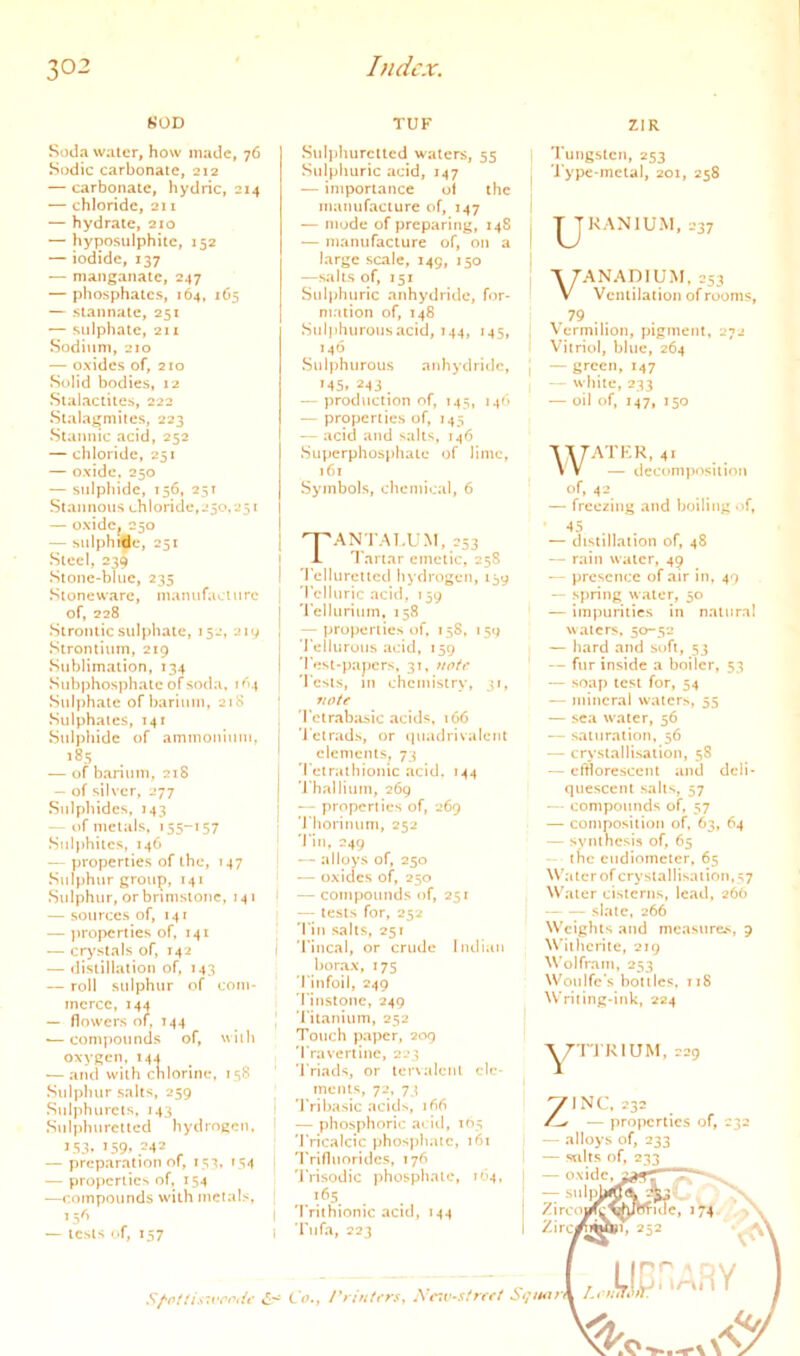 302 Index.
SOD
Soda water, how made, 76
Sodic carbonate, 212
— carbonate, hydric, 214
— chloride, 211
— hydrate, 210
— hyposulphite, 152
— iodide, 137
— manganate, 247
— phosphates, 164, 165
— stannate, 251
— sulphate, 211
Sodium, 210
— oxides of, 210
Solid bodies, 12
Stalactites, 222
Stalagmites, 223
Stannic acid, 252
— chloride, 251
— oxide, 250
— sulphide, 156, 251
Stannous chloride, 250, 251
— oxide, 250
— sulphide, 251
Steel, 239
Stone-blue, 235
Stoneware, manufacture
of, 228
Strontic sulphate, 152, 219
Strontium, 219
Sublimation, 134
Subphosphate of soda, 164
Sulphate of barium, 218
Sulphates, 141
Sulphide of ammonium,
185
— of barium, 218
— of silver, 277
Sulphides, 143
— of metals, 155-157
Sulphites, 146
— properties of the, 147
Sulphur group, 141
Sulphur, or brimstone, 141
— sources of, 141
— properties of, 141
— crystals of, 142
— distillation of, 143
— roll sulphur of com-
merce, 144
— flowers of, 144
— compounds of, with
oxygen, 144
— and with chlorine, 158
Sulphur salts, 259
Sulphurets, 143
Sulphuretted hydrogen,
153, 159, 242
— preparation of, 153, 154
— properties of, 154
— compounds with metals,
156
— tests of, 157
TUF
Sulphuretted waters, 55
Sulphuric acid, 147
— importance of the
manufacture of, 147
— mode of preparing, 148
— manufacture of, on a
large scale, 149, 150
— salts of, 151
Sulphuric anhydride, for-
mation of, 148
Sulphurous acid, 144, 145,
146
Sulphurous anhydride,
145, 243
— production of, 145, 146
— properties of, 145
— acid and salts, 146
Superphosphate of lime,
161
Symbols, chemical, 6
TANTALUM, 253
Tartar emetic, 258
Telluretted hydrogen, 159
Telluric acid, 159
Tellurium, 158
— properties of, 158, 159
Tellurous acid, 159
Test-papers, 31, note
Tests, in chemistry, 31,
note
Tetrabasic acids, 166
Tetrads, or quadrivalent
elements, 73
Tetrathionic acid, 144
Thallium, 269
— properties of, 269
Thorinum, 252
Tin, 249
— alloys of, 250
— oxides of, 250
— compounds of, 251
— tests for, 252
Tin salts, 251
Tincal, or crude Indian
borax, 175
Tinfoil, 249
Tinstone, 249
Titanium, 252
Touch paper, 209
Travertine, 223
Triads, or tervalent ele-
ments, 72, 73
Tribasic acids, 166
— phosphoric acid, 165
Tricalcic phosphate, 161
Trifluorides, 176
Trisodic phosphate, 164,
165
Trithionic acid, 144
Tufa, 223
ZIR
Tungsten, 253
Type-metal, 201, 258
URANIUM, 237
VANADIUM, 253
Ventilation of rooms,
79
Vermilion, pigment, 272
Vitriol, blue, 264
— green, 147
— white, 233
— oil of, 147, 150
WATER, 41
— decomposition
of, 42
— freezing and boiling of,
45
— distillation of, 48
— rain water, 49
— presence of air in, 49
— spring water, 50
— impurities in natural
waters, 50-52
— hard and soft, 53
— fur inside a boiler, 53
— soap test for, 54
— mineral waters, 55
— sea water, 56
— saturation, 56
— crystallisation, 58
— efflorescent and deli-
quescent salts, 57
— compounds of, 57
— composition of, 63, 64
— synthesis of, 65
— the eudiometer, 65
Water of crystallisation, 57
Water cisterns, lead, 266
— — slate, 266
Weights and measures, 9
Witherite, 219
Wolfram, 253
Woulfe's bottles, 118
Writing-ink, 224
YTTRIUM, 229
ZINC, 232
— properties of, 232
— alloys of, 233
— salts of, 233
— oxide,
174
252
Spottiswoode & Co., Printers, New-street Square London.
LIBRARY